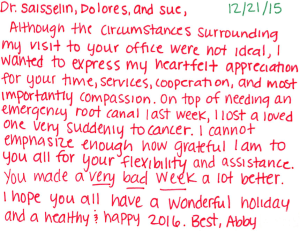 Dr. Saisselin, Dolores, and Sue, 12/21/15
Although the circumstances surrounding
my visit to your office were not ideal, I
wanted to express my heartfelt appreciation
for your time, services, cooperation, and most
importantly compassion. On top of needing an
emergency root canal last week, I lost a loved
one very suddenly to cancer. I cannot
emphasize enough how grateful I am to
you all for your flexibility and assistance.
You made a very bad week a lot better.
I hope you all have a wonderful holiday
and a healthy & happy 2016. Best, Abby